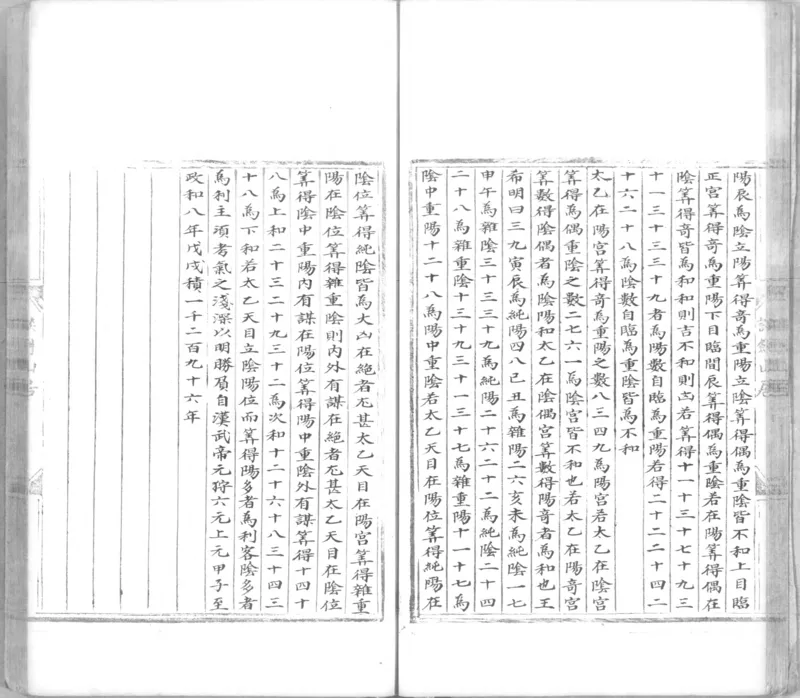 陽辰爲陰立陽筭得奇爲重陽立陰筭得偶爲重陰皆不和上目臨
正宮筭得奇爲重陽下目臨間辰筭得偶爲重陰若在陽筭得偶在
陰筭得奇皆爲和和則吉不和則凶若筭得十一十三十七十九三
十一三十三三十九者爲陽數自臨爲重陽若得二十二二十四二
十六二十八爲陰數自臨爲重陰皆爲不和
太乙在陽宮筭得奇爲重陽之數八三四九爲陽宮若太乙在陰宮
筭得爲偶重陰之數二七六一爲陰宮皆不和也若太乙在陽奇宮
筭數得陰偶者爲陰陽和太乙在陰偶宮筭數得陽奇者爲和也王
希明曰三九寅辰爲純陽四八己丑爲雜陽二六亥未爲純陰一七
申午爲雜陰三十三三十九爲純陽二十六二十二爲純陰二十四
二十八爲雜重陰十三十九三十一三十七爲雜重陽十一十七爲
陰中重陽十二十八爲陽中重陰若太乙天目在陽位筭得純陽在
陰位筭得純陰皆爲大凶在絕者尤甚太乙天目在陽宮筭得雜重
陽在陰位筭得雜重陰則內外有謀在絕者尤甚太乙天目在陰位
筭得陰中重陽內有謀在陽位筭得陽中重陰外有謀筭得十四十
八爲上和二十三二十九三十二爲次和十二十六十八三十四三
十八爲下和若太乙天目立陰陽位而筭得陽多者爲利客陰多者
爲利主須考氣之淺深以明勝負自漢武帝元狩六元上元甲子至
政和八年戊戌積一千二百九十六年